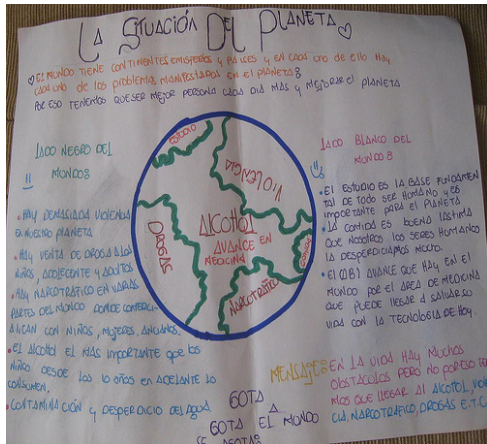 LA SITUACIÓN DEL PLANETA
EL MUNDO TIENE CONTINENTES EMISFERIOS Y PAISES Y EN CADA UNO DE ELLO HAY
CADA UNO DE LOS PROBLEMAS MANIFESTADOS EN EL PLANETA
POR ESO TENEMOS QUE SER MEJOR PERSONA CADA DIA MAS Y MEJORAR EL PLANETA
LADO NEGRO DEL
MUNDO
• HAY DEMASIADA VIOLENCIA
EN NUESTRO PLANETA
• HAY VENTA DE DROGA A LOS
NIÑOS, ADOLECENTE Y ADULTOS
• HAY NARCOTRAFICO EN VARIAS
PARTES DEL MUNDO DONDE
CON NIÑOS, MUJERES, ANCIANOS.
• EL ALCOHOL EL MAS IMPORTANTE QUE LOS
NIÑOS DESDE LOS 10 AÑOS EN ADELANTE LO
CONSUMEN.
• CONTAMINACIÓN Y DESPERDICIO DEL AGUA
ESTUDIO
VIOLENCIA
DROGAS
ALCOHOL
AVANCE EN
MEDICINA
NARCOTRAFICO
COMIDA
LADO BLANCO DEL
MUNDO
• EL ESTUDIO ES LA BASE FUNDAMEN
TAL DE TODO SER HUMANO Y ES
IMPORTANTE PARA EL PLANETA
• LA COMIDA ES BUENA LASTIMA
QUE NOSOTROS LOS SERES HUMANOS
LA DESPERDICIAMOS MUCHO.
• EL AVANCE QUE HAY EN EL
MUNDO POR EL AREA DE MEDICINA
QUE PUEDE LLEGAR A SALVAR SU
VIDA CON LA TECNOLOGIA DE HOY.
MENSAJES
EN LA VIDA HAY MUCHOS
OBSTACULOS PERO NO POR ESO TENE
MOS QUE LLEGAR AL ALCOHOL, VIOLEN
CIA, NARCOTRAFICO, DROGAS E.T.C
GOTA
A
GOTA EL MUNDO
SE AGOTA